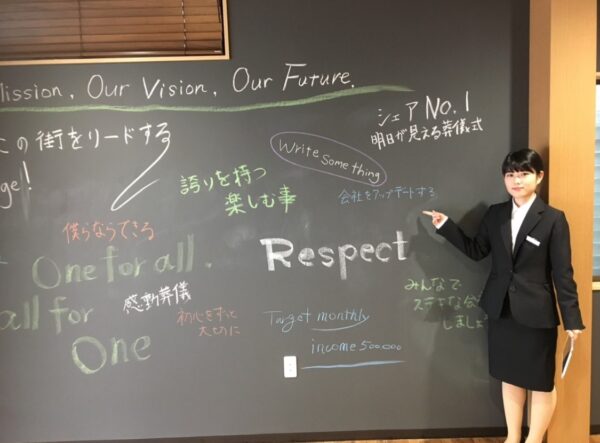 Mission, Our Vision, Our Future.
この街をリードする
シェア NO.1
明日が見える葬儀式
Write Something
誇りを持つ
楽しむ事
会社をアップデートする
僕らならできる
Respect
One for all.
all for
One
感動葬儀
初心をずっと
大切に
みんなで
ステキな会
しましょ
Target monthly
income 500.000